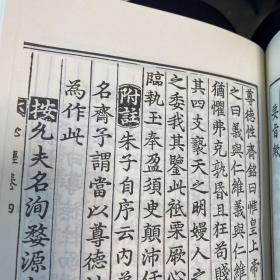 尊德性齋銘曰惟皇上帝
之曰義與仁維義與
猶懼弗克孰昏且狂苟賤
其四支褻天之明嫚人之
之委我其鑒此祗栗厥心
臨執玉奉盈須臾顛沛
附註 朱子自序云内弟
名齋予謂當以尊德性
為作此
按允夫名洵婺源
心經卷四